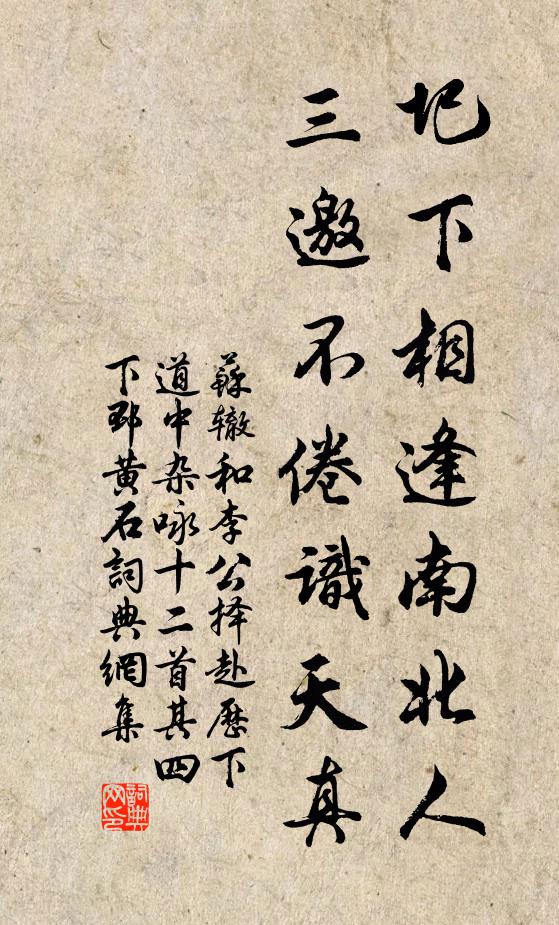 圯下相逢南北人
三邀不倦識天真
蘇辙和李公择赴歷下
道中杂咏十二首其四
下邳黄石詞典網集
詞典
网印